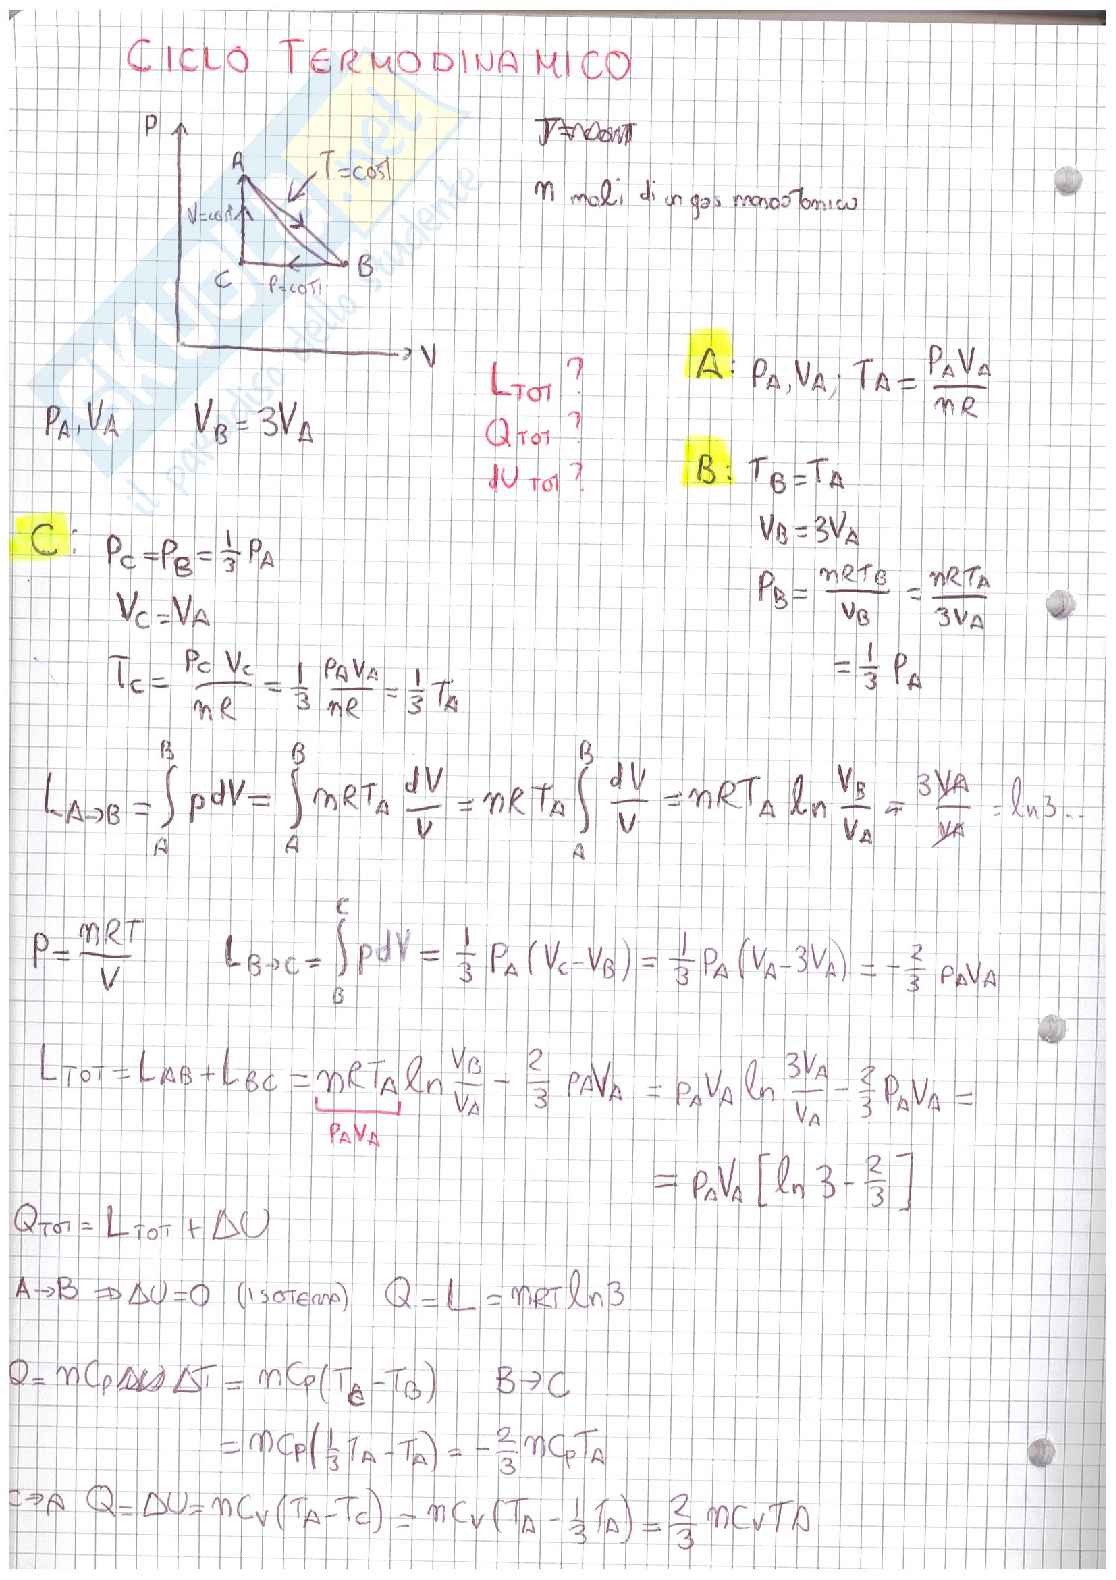 CICLO TERMODINAMICO
P
A
T=COST
V=cost
C
B
P=COST
V
n moli di un gas monoatomico
P_A, V_A   V_B = 3V_A
L_TOT ?
Q_TOT ?
dU_TOT ?
A: P_A, V_A; T_A = P_A V_A / nR
B: T_B = T_A
V_B = 3V_A
P_B = nRT_B / V_B = nRT_A / 3V_A
= 1/3 P_A
C: P_C = P_B = 1/3 P_A
V_C = V_A
T_C = P_C V_C / nR = 1/3 P_A V_A / nR = 1/3 T_A
L_A→B = ∫_A^B pdV = ∫_A^B nRT_A dV/V = nRT_A ∫_A^B dV/V = nRT_A ln V_B/V_A = 3V_A/V_A = ln3...
P = nRT/V   L_B→C = ∫_B^C pdV = 1/3 P_A (V_C - V_B) = 1/3 P_A (V_A - 3V_A) = -2/3 P_A V_A
L_TOT = L_AB + L_BC = nRT_A ln V_B/V_A - 2/3 P_A V_A = P_A V_A ln 3V_A/V_A - 2/3 P_A V_A =
P_A V_A
= P_A V_A [ln 3 - 2/3]
Q_TOT = L_TOT + ΔU
A→B ⇒ ΔU = 0 (ISOTERMA)   Q = L = nRT ln3
Q = nCp ΔT = nCp (T_C - T_B)   B→C
= nCp (1/3 T_A - T_A) = -2/3 nCp T_A
C→A Q = ΔU = nCv (T_A - T_C) = nCv (T_A - 1/3 T_A) = 2/3 nCv T_A